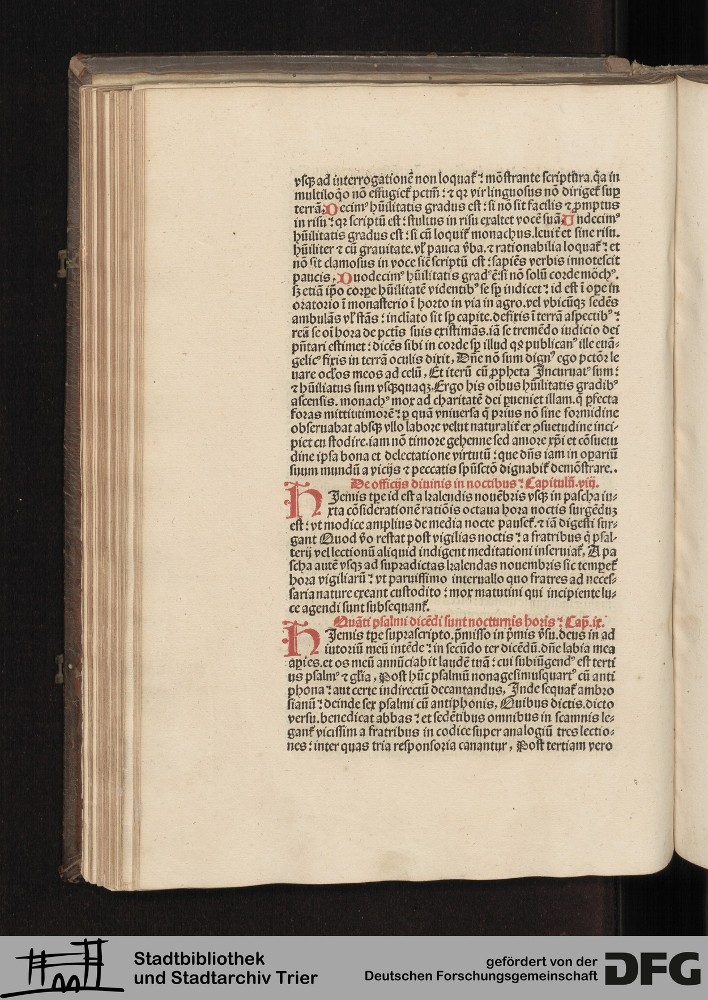 vsq̃ ad interrogationē non loquat᷑ : mōstrante scriptura. q̃a in
multiloq̊o nō effugiet᷑ pctm̄ : ⁊ qꝛ vir linguosus nō diriget᷑ suꝑ
terrā. Decim⁹ hūilitatis gradus est : si nō sit facilis ⁊ ꝓmptus
in risu : qꝛ scriptū est : stultus in risu exaltet vocē suā. Undecim⁹
hūilitatis gradus est : si cū loquit᷑ monachus. leuit̄ et sine risu.
hūiliter ⁊ cū grauitate. vl̓ pauca ꝟba. ⁊ rationabilia loquat᷑ : et
nō sit clamosus in voce sic̄ scriptū est : sapiēs verbis innotescit
paucis. Duodecim⁹ hūilitatis grad⁹ ē: si nō solū corde mōch⁹.
sꝫ etiā ip̄o corꝑe hūilitatē videntib⁹ se sꝑ iudicet : id est ī oꝑe in
oratorio ī monasterio ī horto in via in agro. vel vbicūqꝫ sedēs
ambulās vl̓ stās : inclīato sit sꝑ capite. defixis ī terrā aspectib⁹ :
reū se oī hora de pctīs suis existimās. iā se tremēdo iudicio dei
p̄ntari estimet : dicēs sibi in corde sꝑ illud qđ publican⁹ ille euā-
gelic⁹ fixis in terrā oculis dixit, Dn̄e nō sum dign⁹ ego pctōr le
uare oc̄los meos ad celū, Et iterū cū ꝓpheta Incuruat⁹ sum :
⁊ hūiliatus sum vsq̄quaqꝫ. Ergo his oībus hūilitatis gradib⁹
ascensis. monach⁹ mox ad charitatē dei ꝑueniet illam. q̄ ꝑfecta
foras mittit timorē : ꝑ quā vniuersa q̄ prius nō sine formidine
obseruabat absqꝫ vllo labore velut naturalit̄ ex ꝯsuetudine inci-
piet custodire. iam nō timore gehenne sed amore xp̄i et cōsuetu
dine ipsa bona et delectatione virtutū : que dn̄s iam in oꝑariū
suum mundū a vicijs ⁊ peccatis spūsctō dignabit᷑ demōstrare..
De officijs diuinis in noctibus : Capitulū. viij.
HJemis tꝑe id est a kalendis nouēbris vsqꝫ in pascha iu-
xta cōsiderationē ratiōis octaua hora noctis surgēdū
est : vt modice amplius de media nocte pauset᷑. ⁊ iā digesti sur-
gant Quod ꝟo restat post vigilias noctis : a fratribus q̄ psal-
terij vel lectionū aliquid indigent meditationi inseruiat᷑, A pa
scha autē vsqꝫ ad supradictas kalendas nouembris sic temꝑet᷑
hora vigiliarū : vt paruissimo interuallo quo fratres ad neces-
saria nature exeant custodito : mox matutini qui incipiente lu-
ce agendi sunt subsequant᷑.
Quāti psalmi dicēdi sunt nocturnis horis : Cap̄. ix.
HJemis tꝑe suprascripto. p̄misso in p̄mis ꝟsu. deus in ad
iutoriū meū intēde : in secūdo ter dicēdū. dn̄e labia mea
aꝑies. et os meū annūciabit laudē tuā : cui subiūgend⁹ est terti
us psalm⁹ ⁊ gl̄ia, Post hūc psalmū nonagesimusquart⁹ cū anti
phona : aut certe indirectū decantandus, Inde sequat᷑ ambro
sianū : deinde sex psalmi cū antiphonis, Quibus dictis. dicto
versu. benedicat abbas : et sedētibus omnibus in scamnis le-
gant᷑ vicissim a fratribus in codice super analogiū tres lectio-
nes : inter quas tria responsoria canantur, Post tertiam vero
Stadtbibliothek
und Stadtarchiv Trier
gefördert von der
Deutschen Forschungsgemeinschaft
DFG